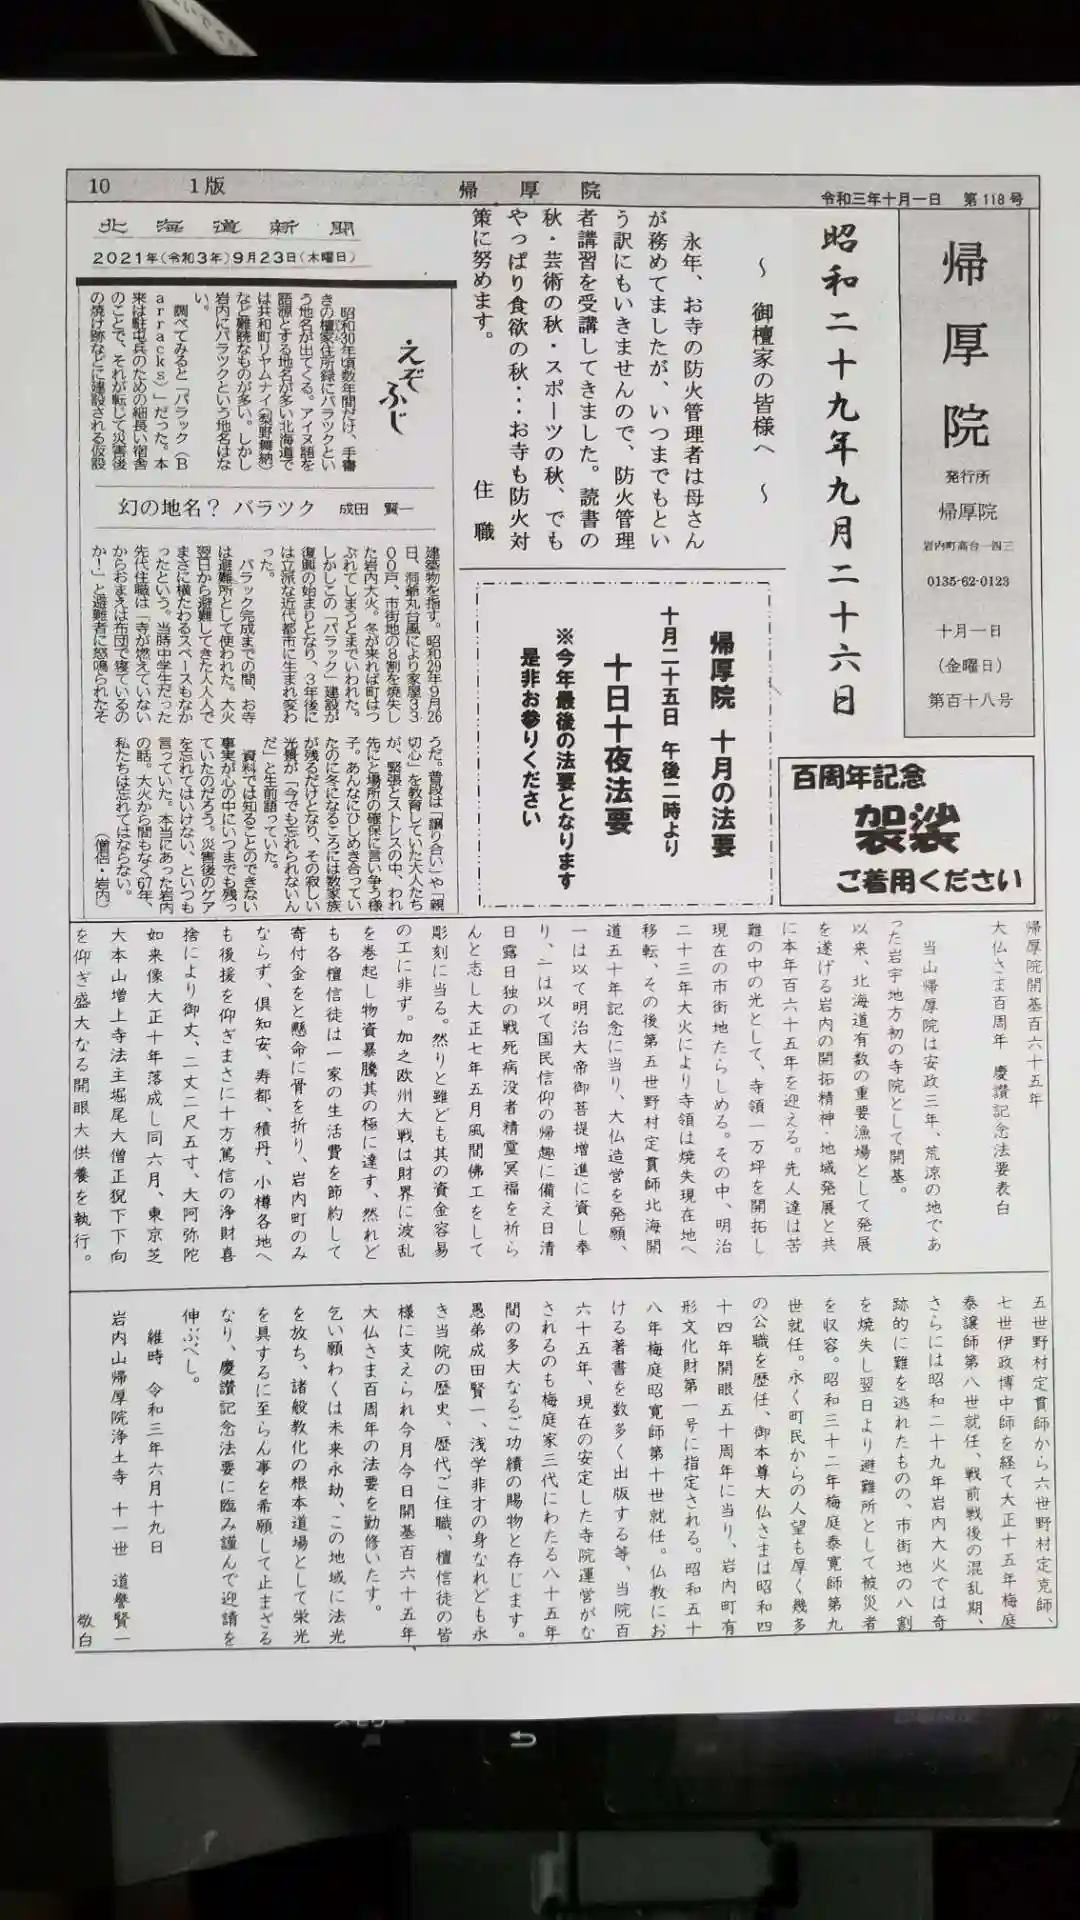 10
1版
帰厚院
令和三年十月一日 第118号
帰厚院
発行所
帰厚院
岩内町高台一四三
0135-62-0123
十月一日
(金曜日)
第百十八号
百周年記念
袈裟
ご着用ください
昭和二十九年九月二十六日
～ 御檀家の皆様へ ～
永年、お寺の防火管理者は母さん
が務めてましたが、いつまでもとい
う訳にもいきませんので、防火管理
者講習を受講してきました。読書の
秋・芸術の秋・スポーツの秋、でも
やっぱり食欲の秋・・・お寺も防火対
策に努めます。
住職
帰厚院 十月の法要
十月二十五日 午後二時より
十日十夜法要
※今年最後の法要となります
是非お参りください
北海道新聞
2021年(令和3年)9月23日(木曜日)
えぞふじ
昭和30年頃数年間だけ、手書
きの檀家住所録にバラックとい
う地名が出てくる。アイヌ語を
語源とする地名が多い北海道で
は共和町リヤムナイ(梨野舞納)
など難読なものが多い。しかし
岩内にバラックという地名はな
い。
調べてみると「バラック(B
arracks)」だった。本
来は駐屯兵のための細長い宿舎
のことで、それが転じて災害後
の焼け跡などに建設される仮設
幻の地名? バラツク 成田 賢一
建築物を指す。昭和29年9月26
日、洞爺丸台風により家屋33
00戸、市街地の8割を焼失し
た岩内大火。冬が来れば町はつ
ぶれてしまうとまでいわれた。
しかしこの「バラック」建設が
復興の始まりとなり、3年後に
は立派な近代都市に生まれ変わ
った。
バラック完成までの間、お寺
は避難所として使われた。大火
翌日から避難してきた人人人で
まさに横たわるスペースもなか
ったという。当時中学生だった
先代住職は「寺が燃えていない
からおまえは布団で寝ているの
か!」と避難者に怒鳴られたそ
うだ。普段は「譲り合い」や「親
切心」を教育していた大人たち
が、緊張とストレスの中、われ
先にと場所の確保に言い争う様
子。あんなにひしめき合ってい
たのに冬になるころには数家族
が残るだけとなり、その寂しい
光景が「今でも忘れられないん
だ」と生前語っていた。
資料では知ることのできない
事実が心の中にいつまでも残っ
ていたのだろう。災害後のケア
を忘れてはいけない、といつも
言っていた。本当にあった岩内
の話。大火から間もなく67年、
私たちは忘れてはならない。
(僧侶・岩内)
帰厚院開基百六十五年
大仏さま百周年 慶讃記念法要表白
当山帰厚院は安政三年、荒涼の地であ
った岩宇地方初の寺院として開基。
以来、北海道有数の重要漁場として発展
を遂げる岩内の開拓精神・地域発展と共
に本年百六十五年を迎える。先人達は苦
難の中の光として、寺領一万坪を開拓し
現在の市街地たらしめる。その中、明治
二十三年大火により寺領は焼失現在地へ
移転、その後第五世野村定貫師北海開
道五十年記念に当り、大仏造営を発願、
一は以て明治大帝御菩提増進に資し奉
り、一は以て国民信仰の帰趣に備え日清
日露日独の戦死病没者精霊冥福を祈ら
んと志し大正七年五月風間佛工をして
彫刻に当る。然りと雖ども其の資金容易
の工に非ず。加之欧州大戦は財界に波乱
を巻起し物資暴騰其の極に達す、然れど
も各檀信徒は一家の生活費を節約して
寄付金をと懸命に骨を折り、岩内町のみ
ならず、倶知安、寿都、積丹、小樽各地へ
も後援を仰ぎまさに十方篤信の浄財喜
捨により御丈、二丈二尺五寸、大阿弥陀
如来像大正十年落成し同六月、東京芝
大本山増上寺法主堀尾大僧正猊下下向
を仰ぎ盛大なる開眼大供養を執行。
五世野村定貫師から六世野村定克師、
七世伊政博中師を経て大正十五年梅庭
泰讓師第八世就任、戦前戦後の混乱期、
さらには昭和二十九年岩内大火では奇
跡的に難を逃れたものの、市街地の八割
を焼失し翌日より避難所として被災者
を収容。昭和三十二年梅庭泰寛師第九
世就任。永く町民からの人望も厚く幾多
の公職を歴任、御本尊大仏さまは昭和四
十四年開眼五十周年に当り、岩内町有
形文化財第一号に指定される。昭和五十
八年梅庭昭寛師第十世就任。仏教にお
ける著書を数多く出版する等、当院百
六十五年、現在の安定した寺院運営がな
されるのも梅庭家三代にわたる八十五年
間の多大なるご功績の賜物と存じます。
愚弟成田賢一、浅学非才の身なれども永
き当院の歴史、歴代ご住職、檀信徒の皆
様に支えられ今月今日開基百六十五年、
大仏さま百周年の法要を勤修いたす。
乞い願わくは未来永劫、この地域に法光
を放ち、諸般教化の根本道場として栄光
を具するに至らん事を希願して止まざる
なり、慶讃記念法要に臨み謹んで迎請を
伸ぶべし。
維時 令和三年六月十九日
岩内山帰厚院浄土寺 十一世 道誉賢一
敬白